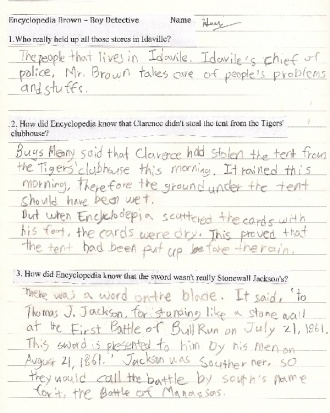 Encyclopedia Brown - Boy Detective Name
1.Who really held up all those stores in Idaville?
The people that lives in Idavile. Idavile's chief of
police, Mr. Brown takes care of people's problems
and stuffs.
2. How did Encyclopedia know that Clarence didn't steal the tent from the Tigers'
clubhouse?
Bugs Meany said that Clarence had stolen the tent from
the Tigers' clubhouse this morning. It rained this
morning, therefore the ground under the tent
should have been wet.
But when Encyclodepia scattered the cards with
his foot, the cards were dry. This proved that
the tent had been put up before the rain.
3. How did Encyclopedia know that the sword wasn't really Stonewall Jackson's?
There was a word on the blade. It said, 'to
Thomas J. Jackson, for standing like a stone wall
at the First Battle of Bull Run on July 21, 1861.
This sword is presented to him by his men on
August 21, 1861.' Jackson was Southerner, so
they would call the battle by south's name
for it, the Battle of Manassas.